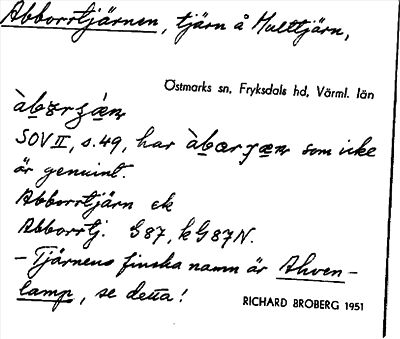 Abborrtjärnen, tjärn å Multtjärn,
Östmarks sn, Fryksdals hd, Värml. län
SOV II, s. 49, har som icke
är genuint.
Abborrtjärn ek
Abborrtj. G87, kG87N.
– Tjärnens finska namn är Ahven-
lamp, se detta!
RICHARD BROBERG 1951